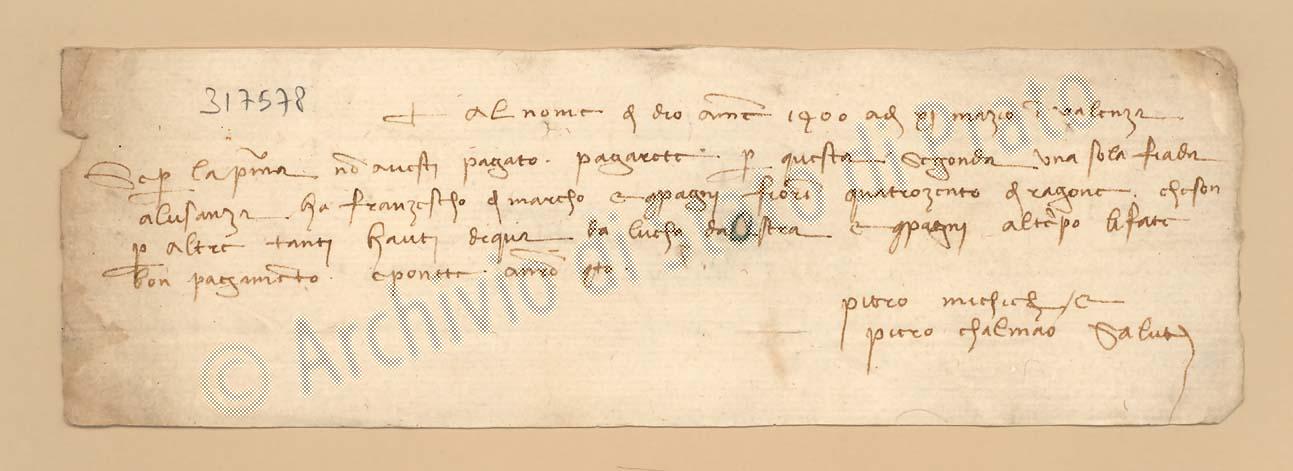 317578
+ Al nome d dio amē 1400 adj xj marzo ī valenza
Se p la pma nō avesti pagato . pagarete . p questa segonda una sola fiada
alusanza ha franzescho d marcho e cpagnj fiorī quatrozento d ragone . cheson
p altre tanti hauti dequa da lucho da sstra e cpagnj altēpo li fate
bon pagamēto . eponete anrō gto
piero michiel e
piero chalmao Salute
© Archivio di Stato di Prato